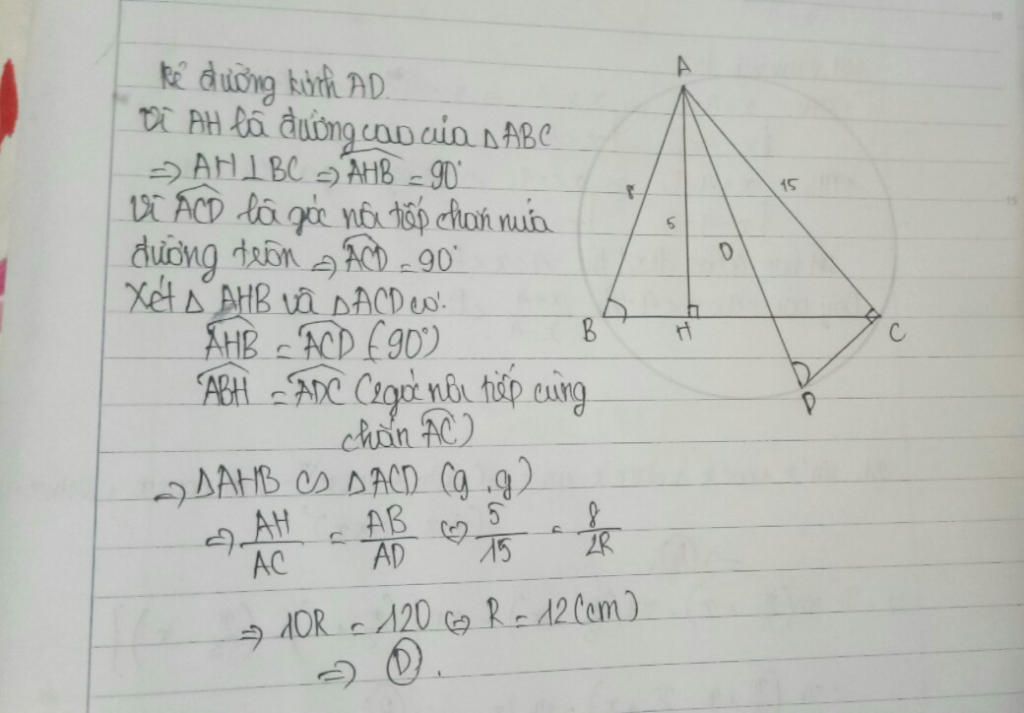 Kẻ đường kính AD.
Vì AH là đường cao của △ABC
⇒ AH⊥BC ⇒ \widehat{AHB} = 90°
Vì \widehat{ACD} là góc nội tiếp chắn nửa
đường tròn ⇒ \widehat{ACD} = 90°
Xét △ AHB và △ACD có:
\widehat{AHB} = \widehat{ACD} (90°)
\widehat{ABH} = \widehat{ADC} (2 góc nội tiếp cùng
chắn \overset{\frown}{AC})
⇒ △AHB ∽ △ACD (g.g)
⇒ \frac{AH}{AC} = \frac{AB}{AD} ⇔ \frac{5}{15} = \frac{8}{2R}
⇒ 10R = 120 ⇔ R = 12 (cm)
⇒ Ⓓ.
A
8
5
15
O
B
H
C
D